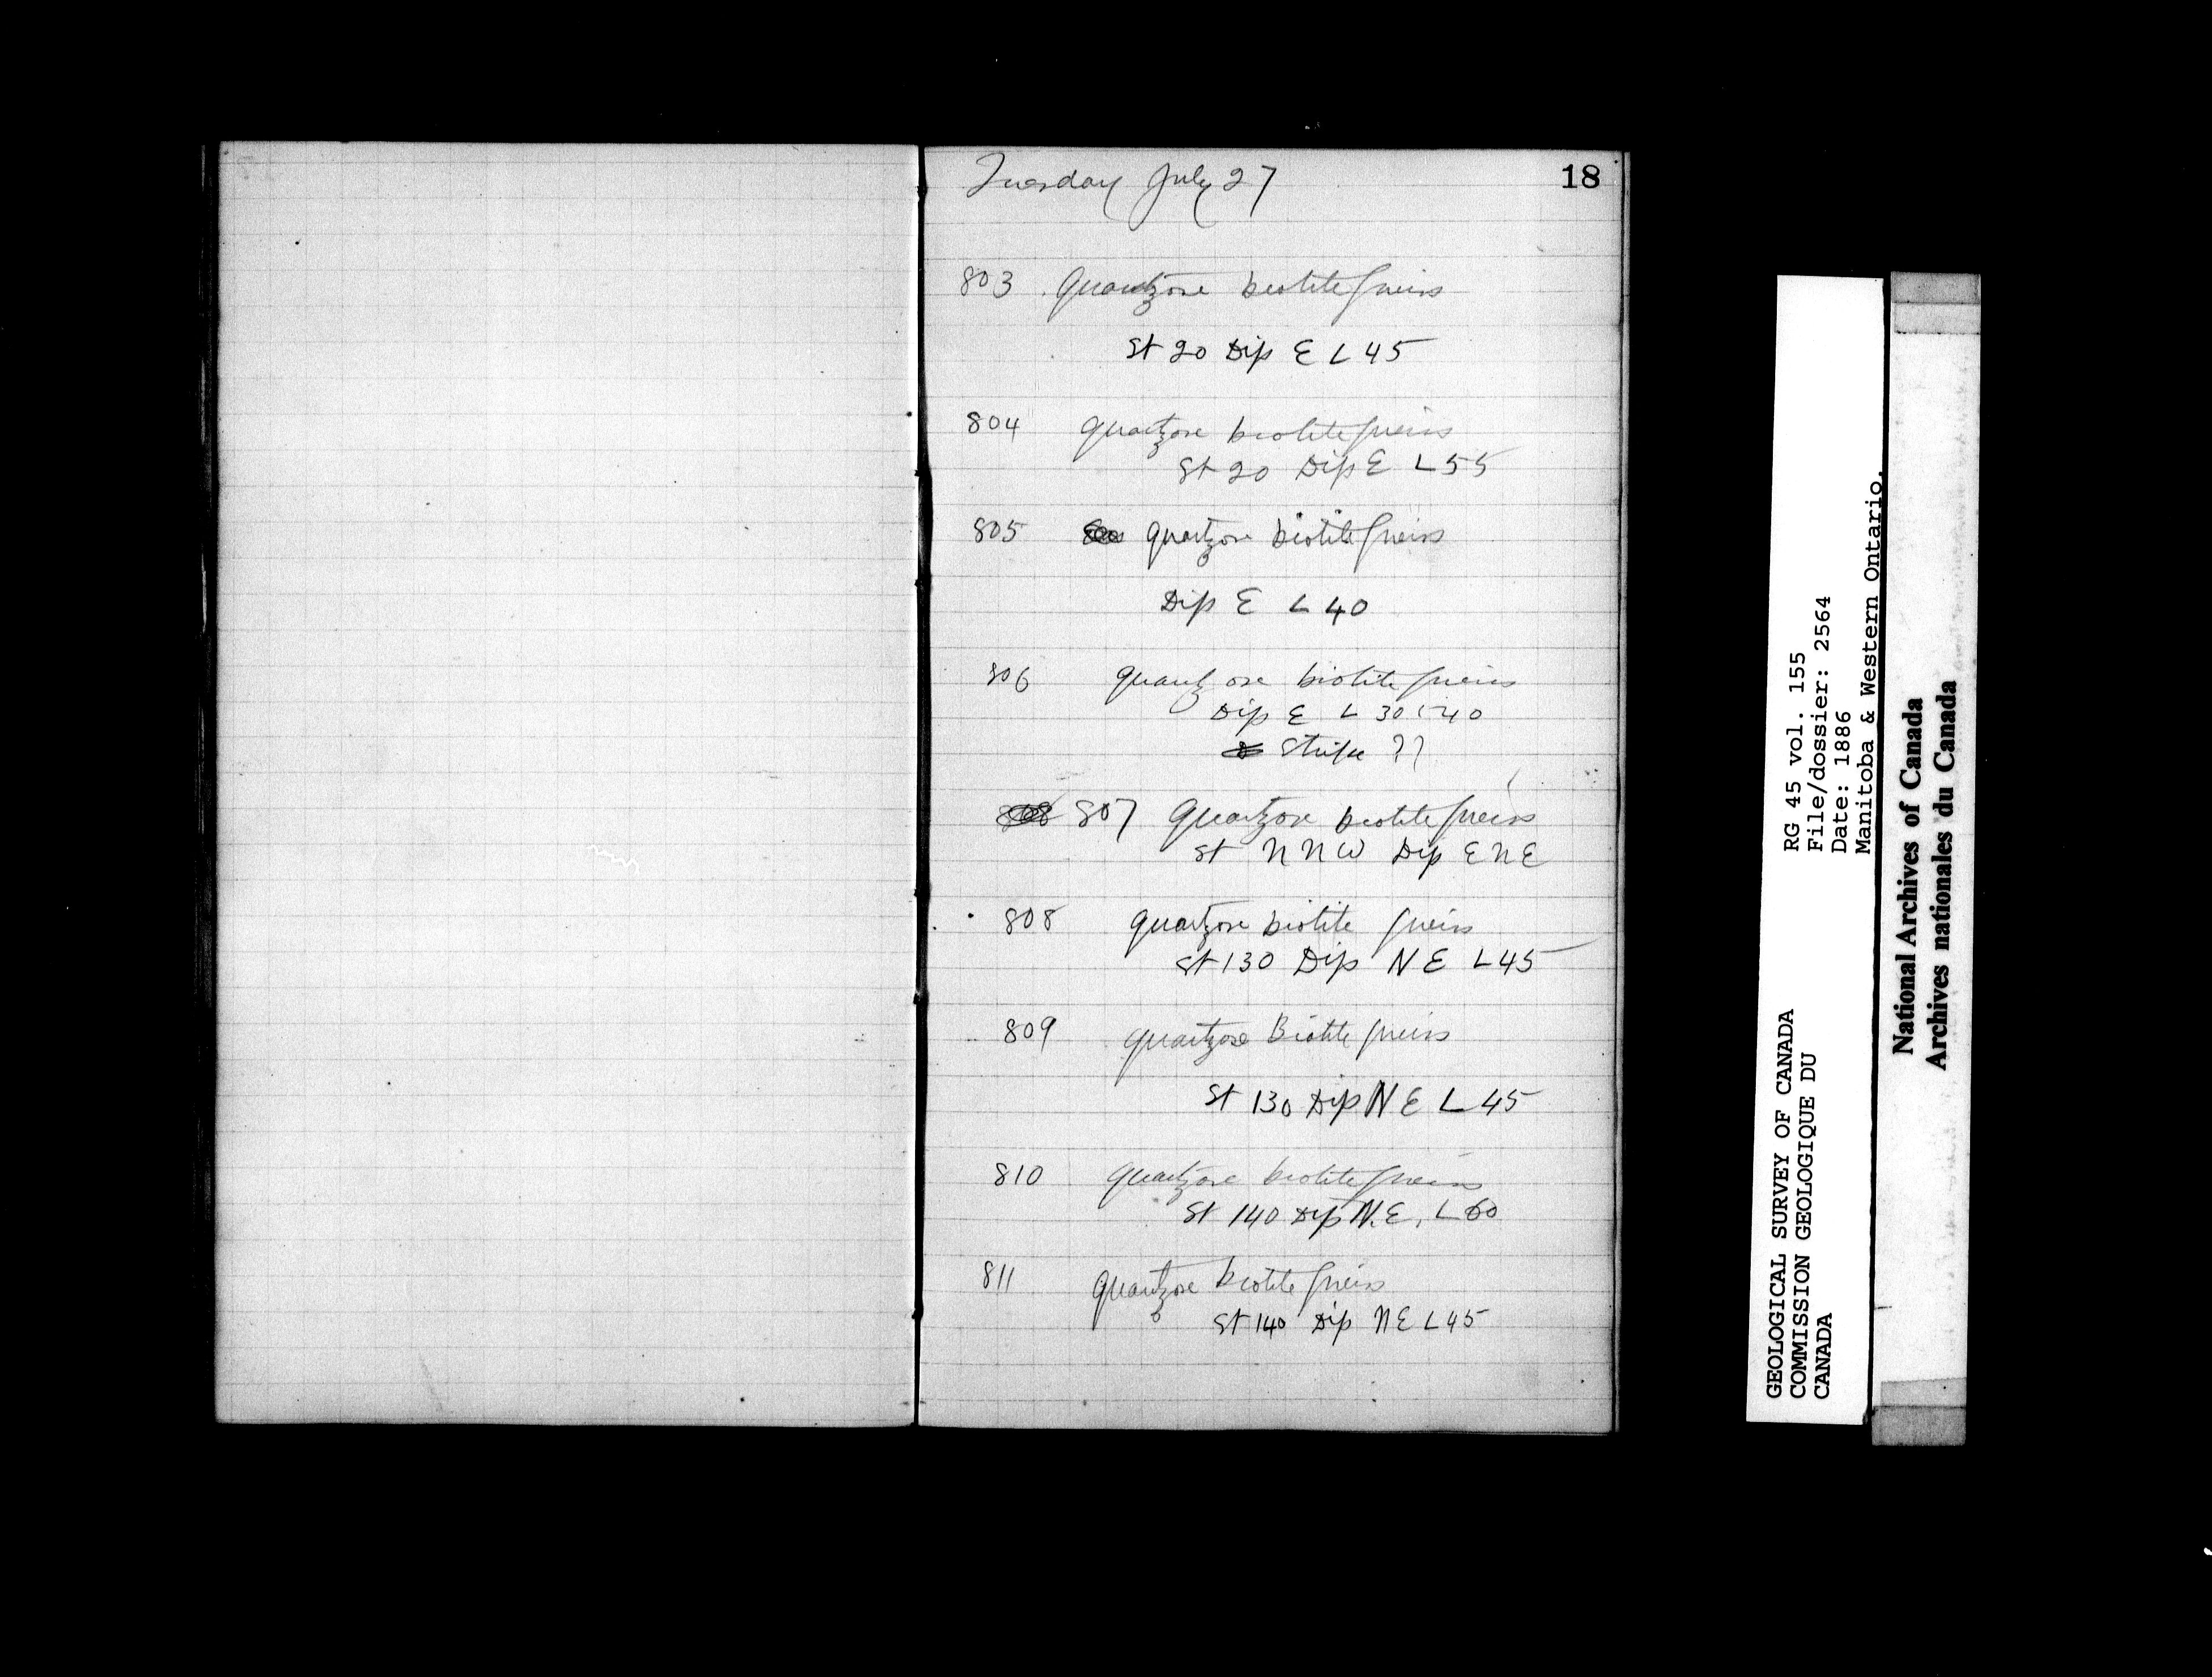 Tuesday July 27
18
803 Quartzose biotite gneiss
St 20 Dip E L 45
804 quartzose biotite gneiss
St 20 Dip E L 55
805 quartzose biotite gneiss
Dip E L 40
806 quartzose biotite gneiss
Dip E L 30 40
Strike ??
807 Quartzose biotite gneiss
St N N W Dip E N E
808 quartzose biotite gneiss
St 130 Dip N E L 45
809 quartzose Biotite gneiss
St 130 Dip N E L 45
810 quartzose biotite gneiss
St 140 Dip N.E. L 60
811 quartzose biotite gneiss
St 140 Dip N E L 45
GEOLOGICAL SURVEY OF CANADA
COMMISSION GEOLOGIQUE DU
CANADA
RG 45 vol. 155
File/dossier: 2564
Date: 1886
Manitoba & Western Ontario.
National Archives of Canada
Archives nationales du Canada